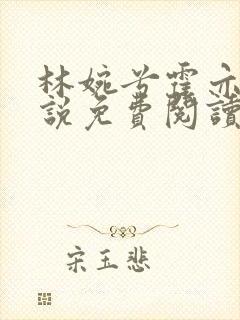 林婉兮霍亦
說免費閱讀
宋玉悲